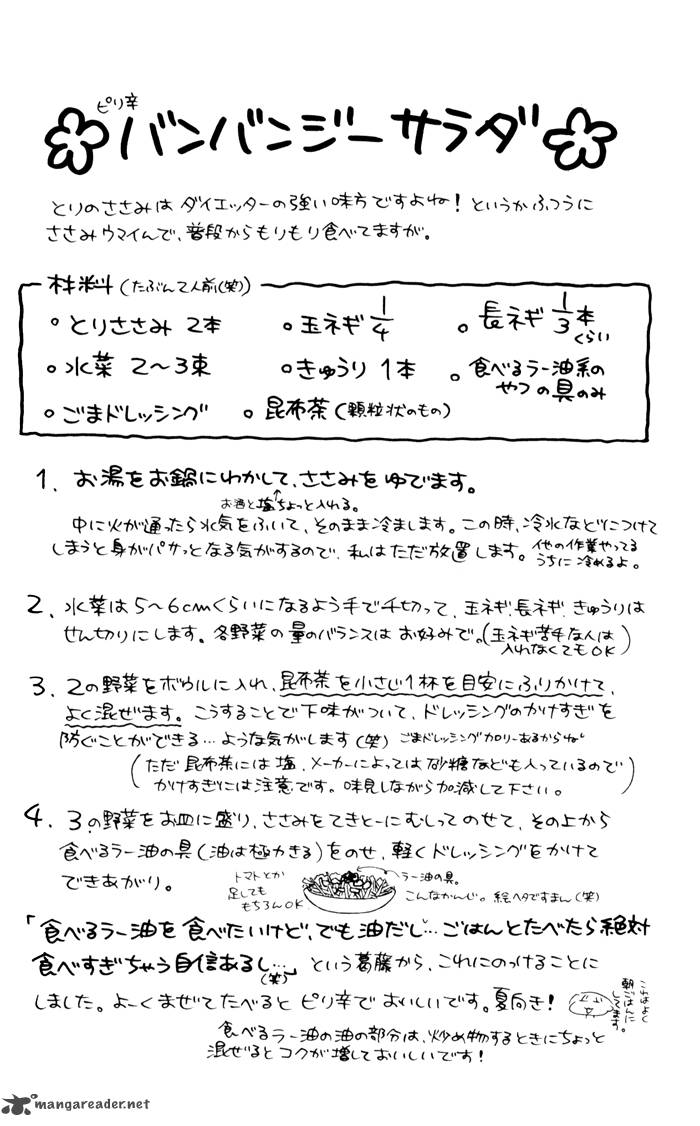 ピリ辛
バンバンジーサラダ
とりのささみは ダイエッターの強い味方ですよね！というかふつうに
ささみウマイんで、普段からもりもり食べてますが。
材料(たぶん2人前(笑))
○とりささみ 2本
○玉ネギ 1/4
○長ネギ 1/3本くらい
○水菜 2〜3束
○きゅうり 1本
○食べるラー油系の
やつの具のみ
○ごまドレッシング
○昆布茶(顆粒状のもの)
1. お湯をお鍋にわかして、ささみをゆでます。
お酒と塩ちょっと入れる。
中に火が通ったら水気をふいて、そのまま冷まします。この時、冷水などにつけて
しまうと身がパサっとなる気がするので、私はただ放置します。他の作業やってる
うちに冷めるよ。
2. 水菜は5〜6cmくらいになるよう手で千切って、玉ネギ、長ネギ、きゅうりは
せん切りにします。各野菜の量のバランスはお好みで。(玉ネギ苦手な人は
入れなくてもOK)
3. 2の野菜をボウルに入れ、昆布茶を小さじ1杯を目安にふりかけて、
よく混ぜます。こうすることで下味がついて、ドレッシングのかけすぎを
防ぐことができる…ような気がします(笑) ごまドレッシングカロリーあるからね
(ただ昆布茶には塩、メーカーによっては砂糖なども入っているので
かけすぎには注意です。味見しながら加減して下さい。)
4. 3の野菜をお皿に盛り、ささみをてきとーにむしってのせて、その上から
食べるラー油の具(油は極力きる)をのせ、軽くドレッシングをかけて
できあがり。
トマトとか
足しても
もちろんOK
ラー油の具。
こんなかんじ。絵ヘタですまん(笑)
「食べるラー油を食べたいけど、でも油だし…ごはんとたべたら絶対
食べすぎちゃう自信あるし…」(笑)という葛藤から、これにのっけることに
しました。よーくまぜてたべるとピリ辛でおいしいです。夏向き！
これはよく
朝ごはんに
してます。
食べるラー油の油の部分は、炒め物するときにちょっと
混ぜるとコクが増しておいしいです！
mangareader.net